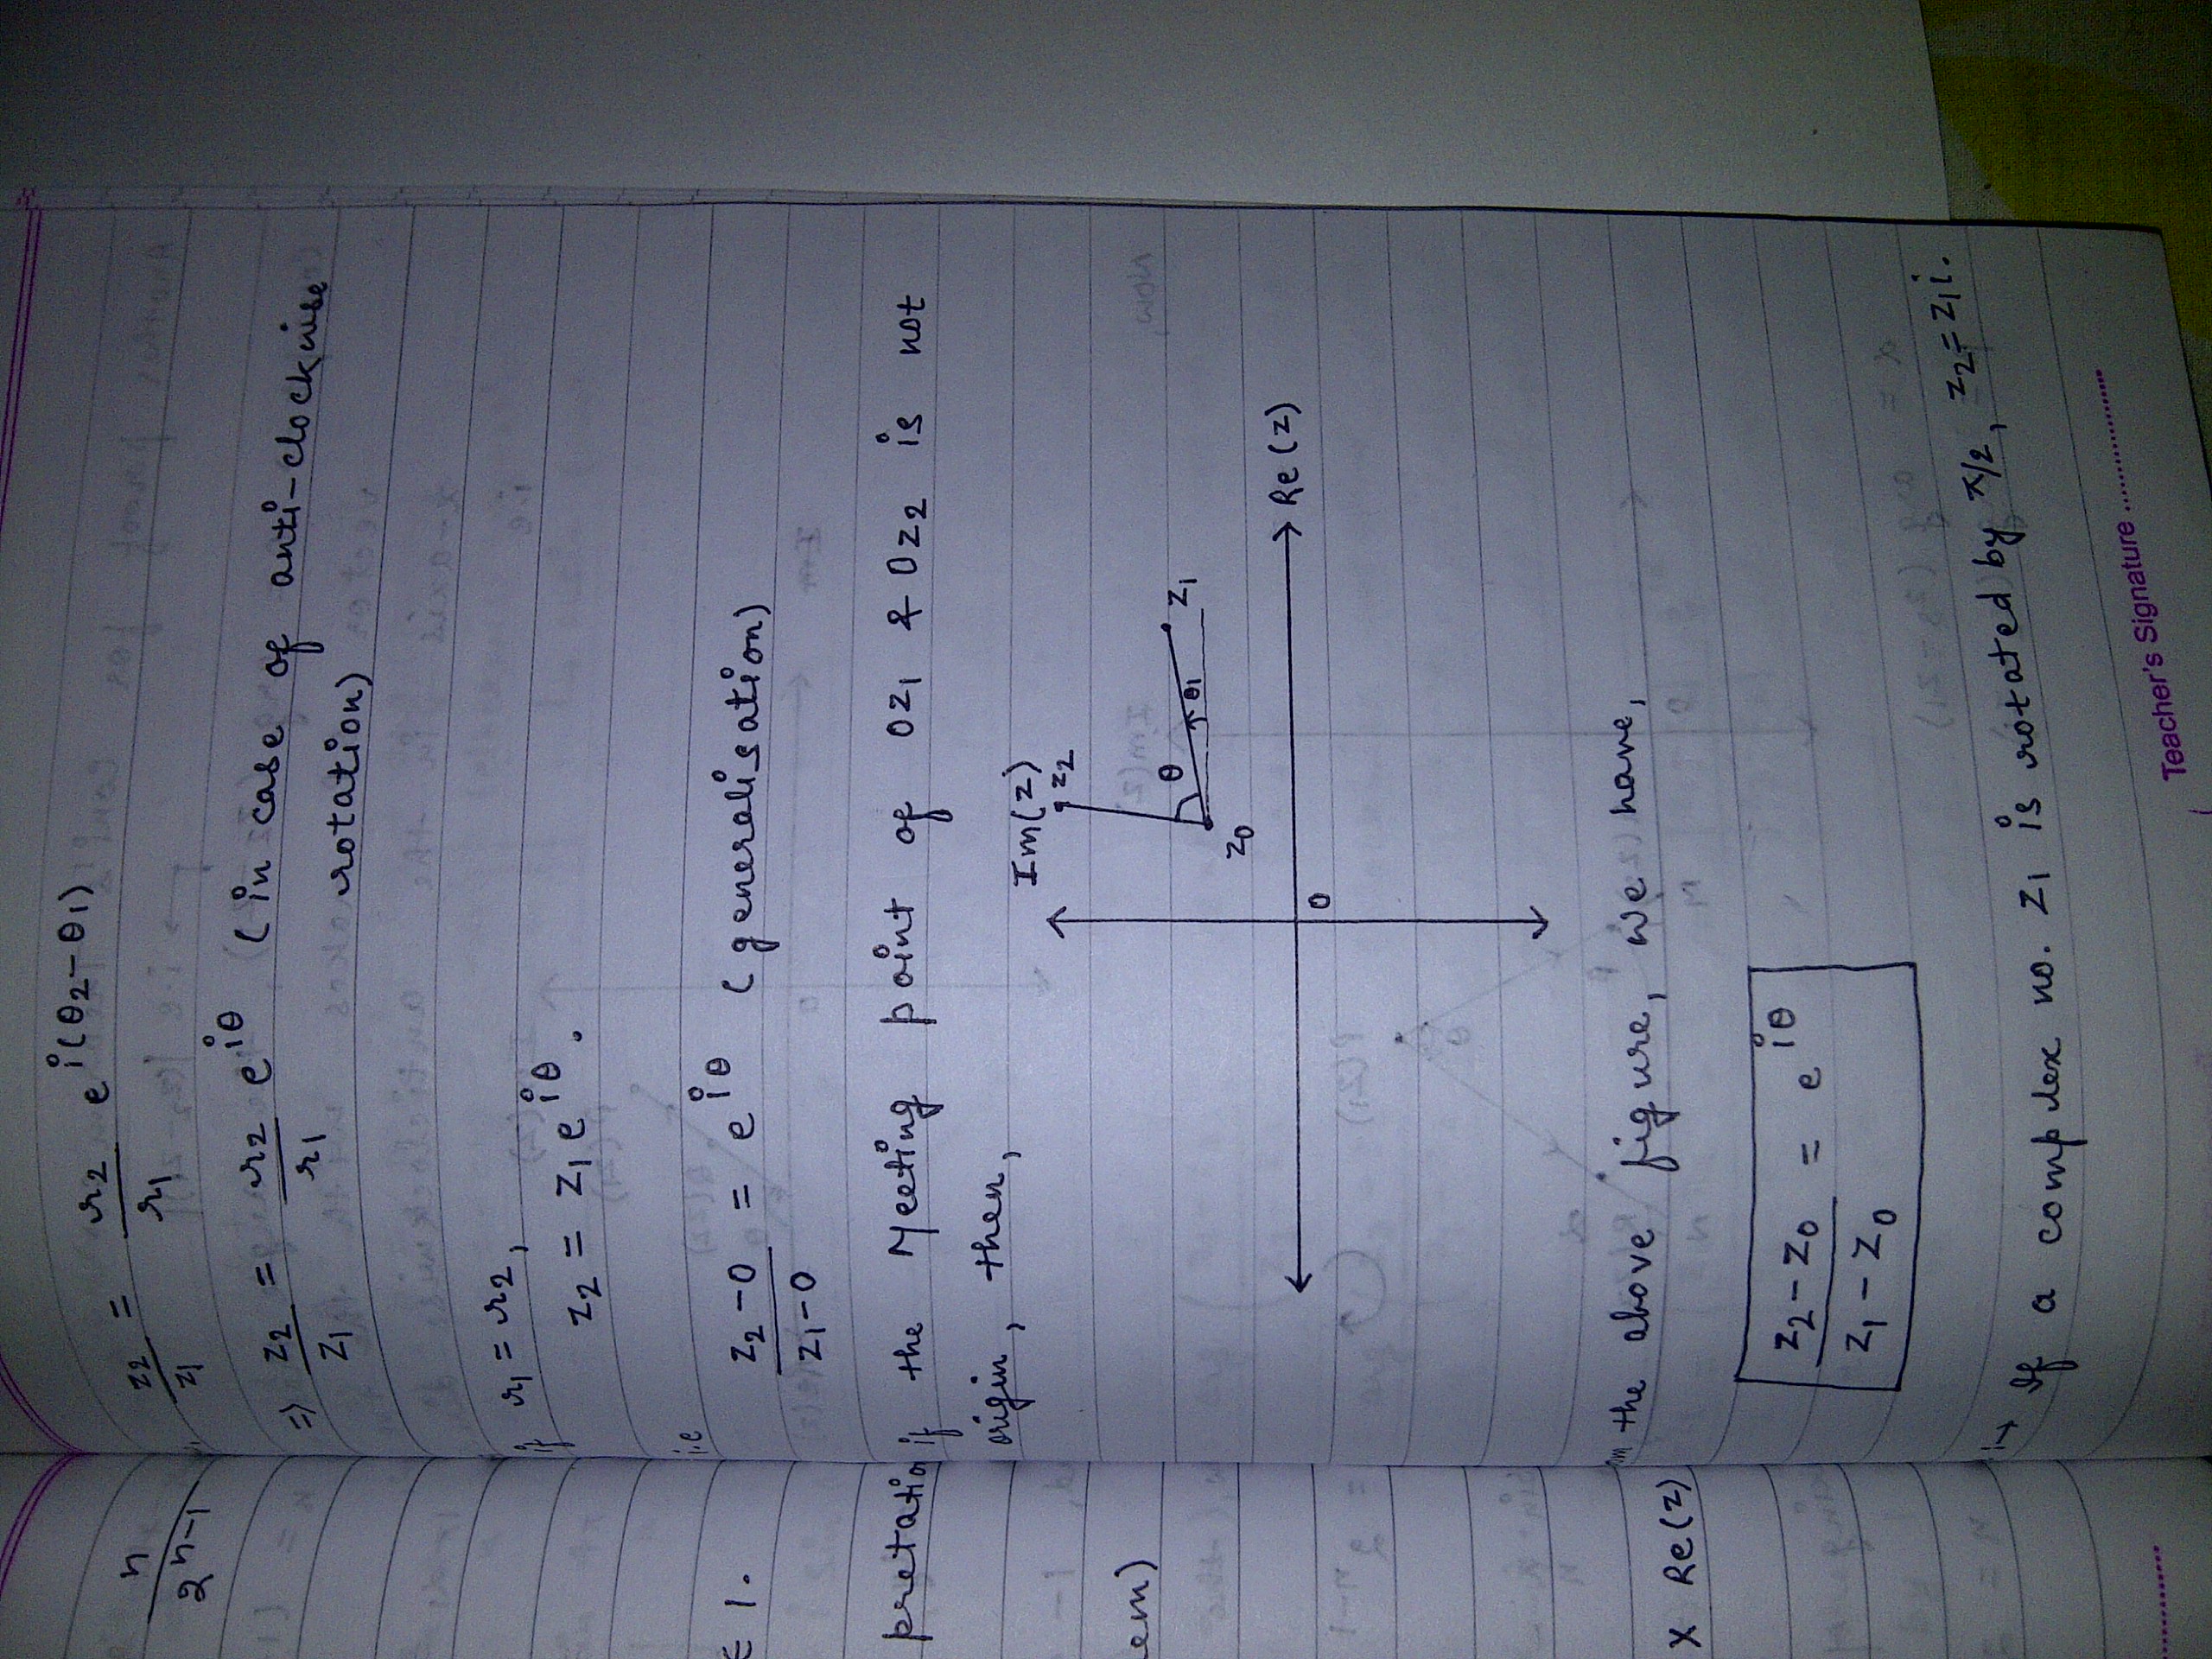 n
2^{n-1}
∈ 1.
pretatio
em)
X Re(z)
z2/z1 = r2/r1 e^{i(θ2-θ1)}
⇒ z2/z1 = r2/r1 e^{iθ} (in case of anti-clockwise
rotation)
if r1 = r2,
z2 = z1 e^{iθ}.
i.e
z2-0/z1-0 = e^{iθ} (generalisation)
if the Meeting point of OZ1 & OZ2 is not
origin, then,
Im(z)
z2
θ
θ1
z1
z0
Re(z)
0
om the above figure, we have,
z2-z0/z1-z0 = e^{iθ}
→ If a complex no. z1 is rotated by π/2, z2=z1i.
Teacher's Signature ....................